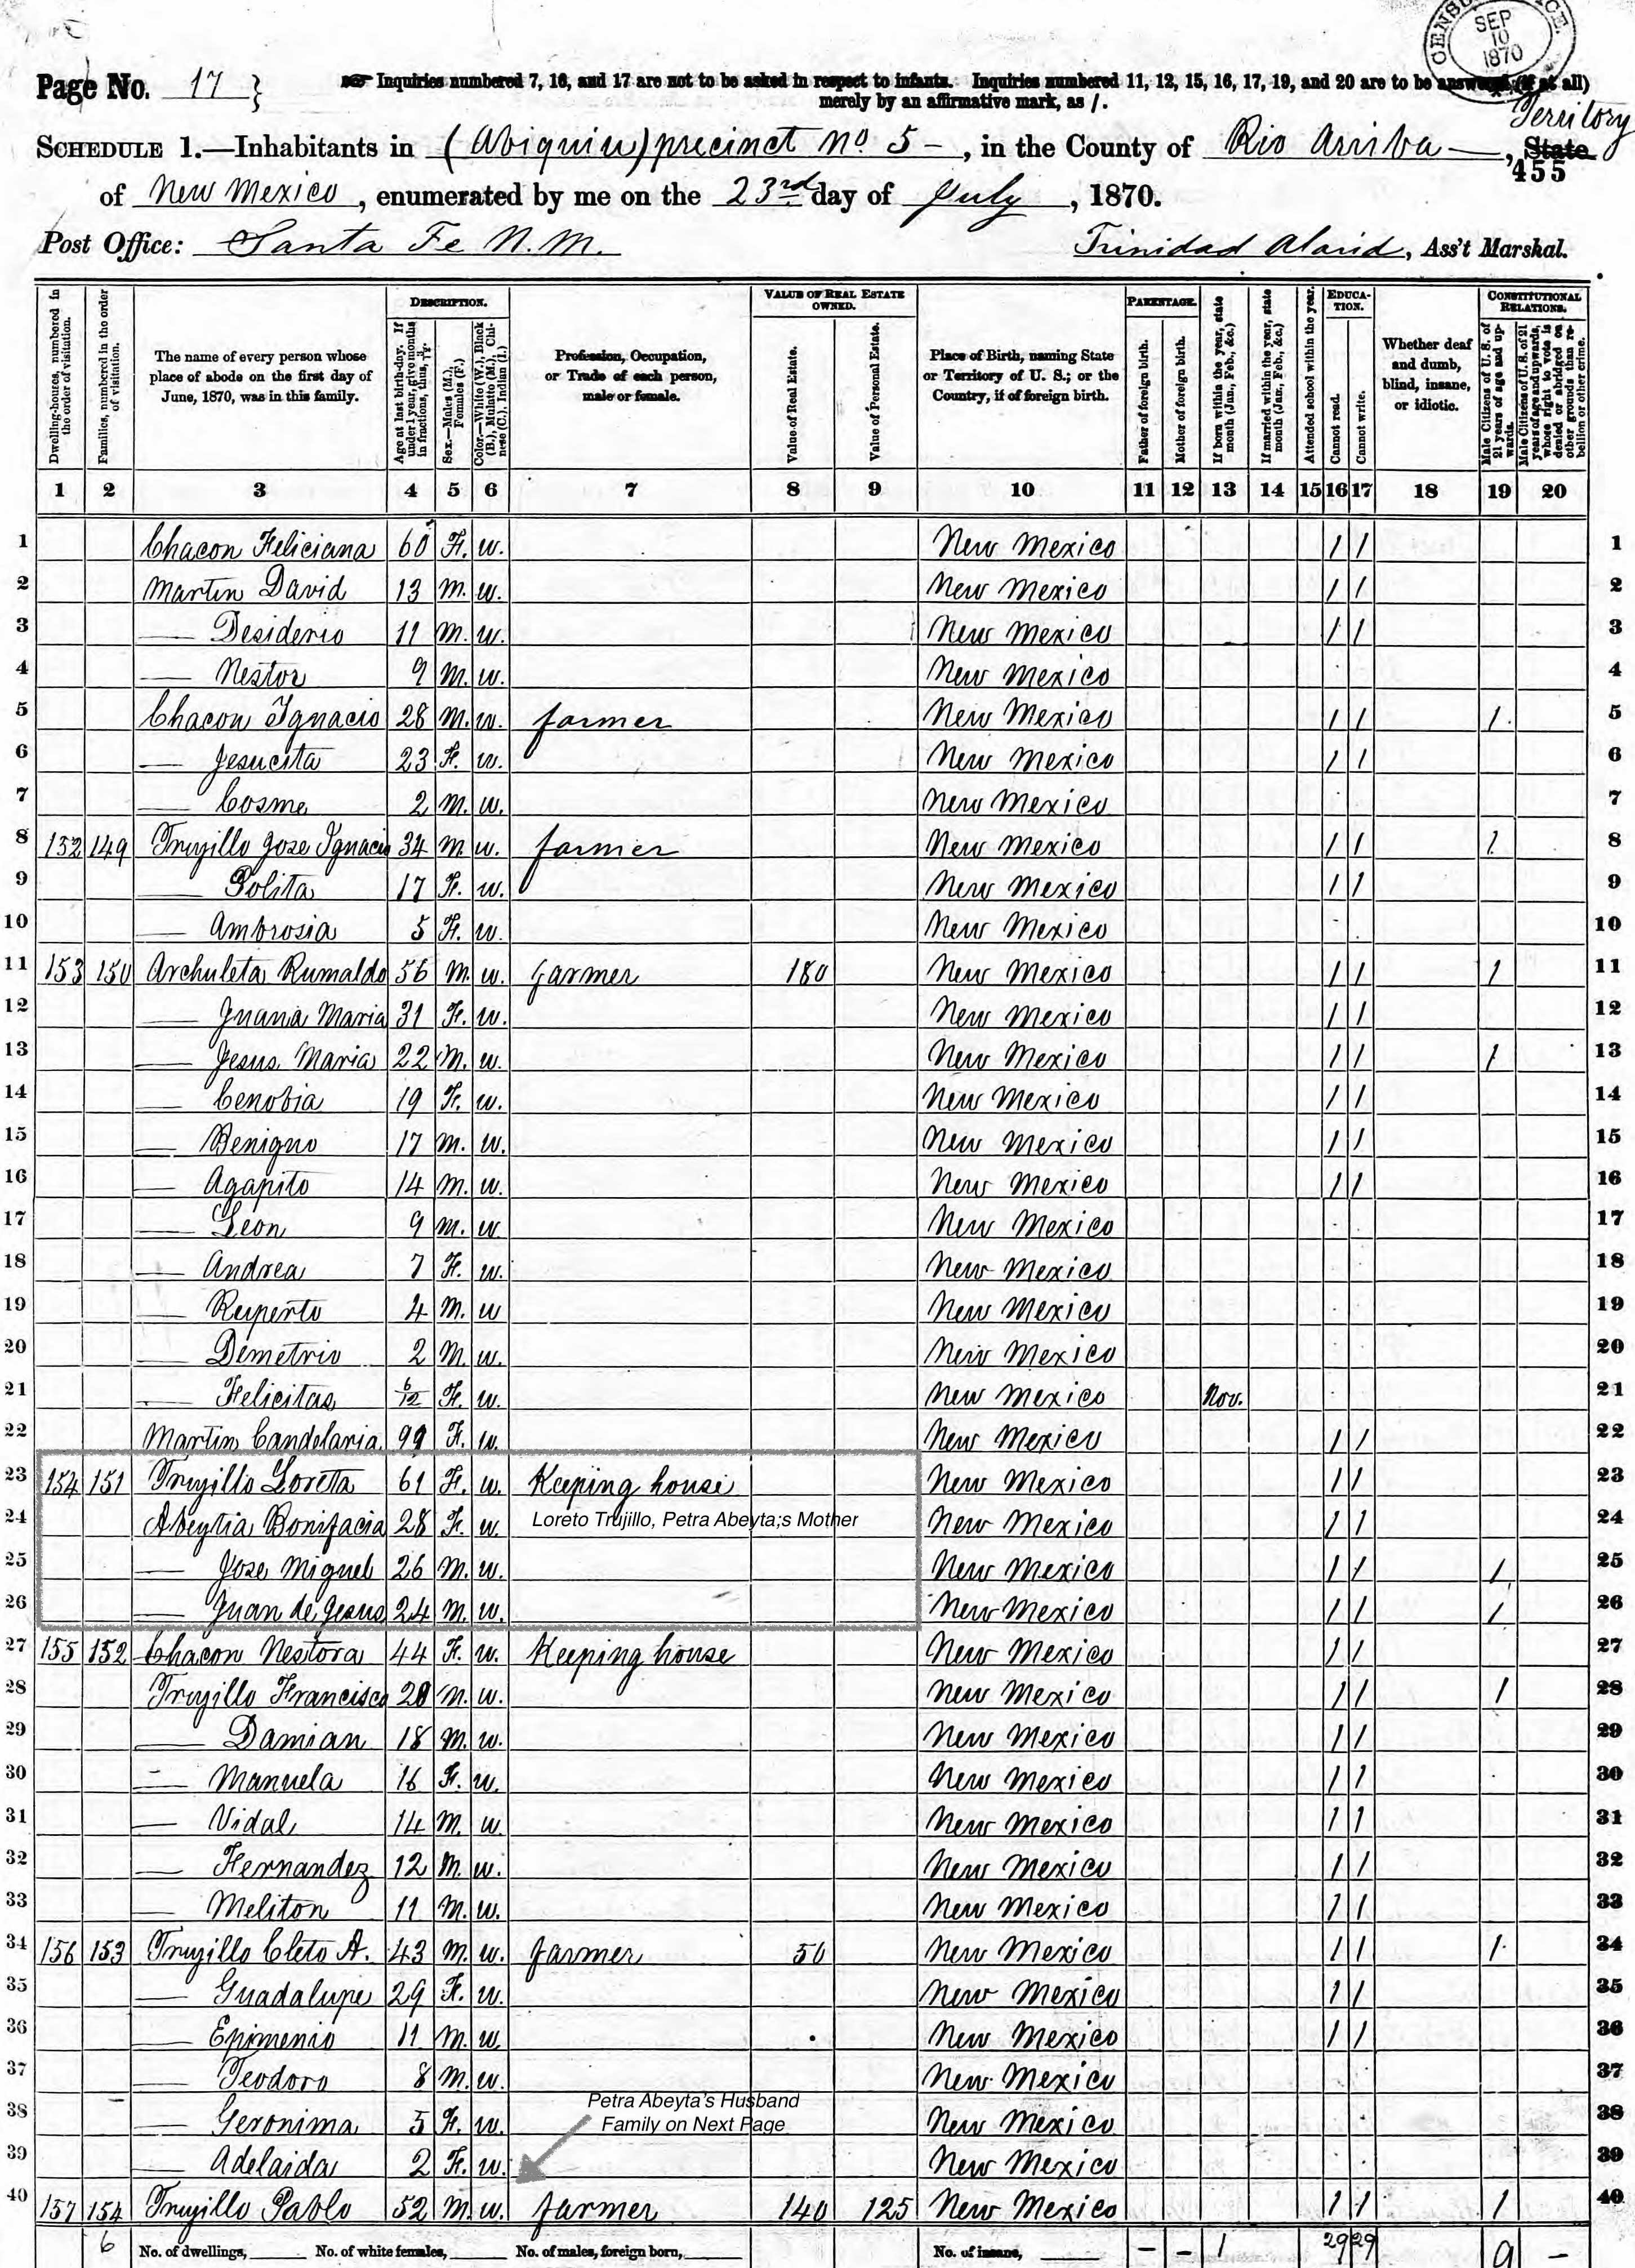 CENSUS OFFICE SEP 10 1870
Page No. 17 } ☞ Inquiries numbered 7, 16, and 17 are not to be asked in respect to infants. Inquiries numbered 11, 12, 15, 16, 17, 19, and 20 are to be answered (if at all)
merely by an affirmative mark, as /.
Territory
SCHEDULE 1.—Inhabitants in (Abiquiu) precinct No 5 -, in the County of Rio Arriba —, State
455
of New Mexico, enumerated by me on the 23rd day of July, 1870.
Post Office: Santa Fe N.M. Trinidad Alarid, Ass't Marshal.
Dwelling-houses, numbered in the order of visitation.
Families, numbered in the order of visitation.
The name of every person whose place of abode on the first day of June, 1870, was in this family.
DESCRIPTION.
Age at last birth-day. If under 1 year, give months in fractions, thus, 3/12.
Sex.—Males (M.), Females (F.)
Color.—White (W.), Black (B.), Mulatto (M.), Chinese (C.), Indian (I.)
Profession, Occupation, or Trade of each person, male or female.
VALUE OF REAL ESTATE OWNED.
Value of Real Estate.
Value of Personal Estate.
Place of Birth, naming State or Territory of U. S.; or the Country, if of foreign birth.
PARENTAGE.
Father of foreign birth.
Mother of foreign birth.
If born within the year, state month (Jan., Feb., &c.)
If married within the year, state month (Jan., Feb., &c.)
Attended school within the year.
EDUCATION.
Cannot read.
Cannot write.
Whether deaf and dumb, blind, insane, or idiotic.
CONSTITUTIONAL RELATIONS.
Male Citizens of U. S. of 21 years of age and upwards.
Male Citizens of U. S. of 21 years of age and upwards, whose right to vote is denied or abridged on other grounds than rebellion or other crime.
1 2 3 4 5 6 7 8 9 10 11 12 13 14 15 16 17 18 19 20
1 Chacon Feliciana 60 F. w. New Mexico / / 1
2 Martin David 13 M. w. New Mexico / / 2
3 — Desiderio 11 M. w. New Mexico / / 3
4 — Nestor 9 M. w. New Mexico 4
5 Chacon Ygnacio 28 M. w. farmer New Mexico / / / 5
6 — Jesucita 23 F. w. New Mexico / / 6
7 — Cosme 2 M. w. New Mexico 7
8 152 149 Trujillo Jose Ygnacio 34 M. w. farmer New Mexico / / / 8
9 — Polita 17 F. w. New Mexico / / 9
10 — Ambrosia 5 F. w. New Mexico 10
11 153 150 Archuleta Rumaldo 56 M. w. farmer 180 New Mexico / / / 11
12 — Juana Maria 31 F. w. New Mexico / / 12
13 — Jesus Maria 22 M. w. New Mexico / / / 13
14 — Cenobia 19 F. w. New Mexico / / 14
15 — Benigno 17 M. w. New Mexico / / 15
16 — Agapito 14 M. w. New Mexico / / 16
17 — Leon 9 M. w. New Mexico 17
18 — Andrea 7 F. w. New Mexico 18
19 — Ruperto 4 M. w New Mexico 19
20 — Demetrio 2 M. w. New Mexico 20
21 — Felicitas 6/12 F. w. New Mexico Nov. 21
22 Martin Candelaria 99 F. w. New Mexico / / 22
23 154 151 Trujillo Loreta 61 F. w. Keeping house New Mexico / / 23
24 Abeytia Bonifacia 28 F. w. Loreto Trujillo, Petra Abeyta;s Mother New Mexico / / 24
25 — Jose Miguel 26 M. w. New Mexico / / / 25
26 — Juan de Jesus 24 M. w. New Mexico / / / 26
27 155 152 Chacon Nestora 44 F. w. Keeping house New Mexico / / 27
28 Trujillo Francisco 28 M. w. New Mexico / / / 28
29 — Damian 18 M. w. New Mexico / / 29
30 — Manuela 16 F. w. New Mexico / / 30
31 — Vidal 14 M. w. New Mexico / / 31
32 — Hernandez 12 M. w. New Mexico / / 32
33 — Meliton 11 M. w. New Mexico / / 33
34 156 153 Trujillo Cleto A. 43 M. w. farmer 50 New Mexico / / / 34
35 — Guadalupe 29 F. w. New Mexico / / 35
36 — Epimenio 11 M. w. New Mexico / / 36
37 — Teodoro 8 M. w. New Mexico 37
Petra Abeyta's Husband
38 — Geronima 5 F. w. Family on Next Page New Mexico 38
39 — Adelaida 2 F. w. New Mexico 39
40 157 154 Trujillo Pablo 52 M. w. farmer 140 125 New Mexico / / / 40
6 No. of dwellings, No. of white females, No. of males, foreign born, No. of insane, — — 1 29 29 9 —